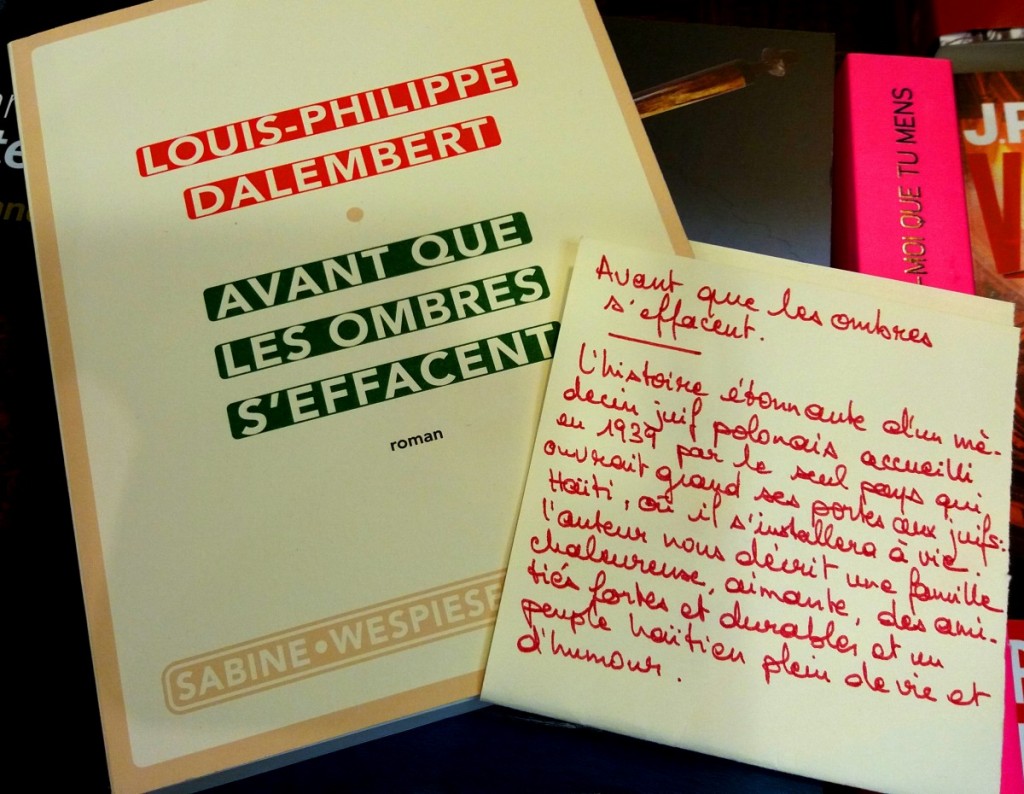 LOUIS-PHILIPPE
DALEMBERT
AVANT QUE
LES OMBRES
S'EFFACENT
roman
SABINE • WESPIESE
Avant que les ombres
s'effacent.
L'histoire étonnante d'un mé-
decin juif polonais accueilli
en 1939 par le seul pays qui,
ouvrait grand ses portes aux juifs:
Haïti, où il s'installera à vie.
l'auteur nous décrit une famille
chaleureuse, aimante, des ami-
tiés fortes et durables et un
peuple haïtien plein de vie et
d'humour.
-MOI QUE TU MENS
J.P.